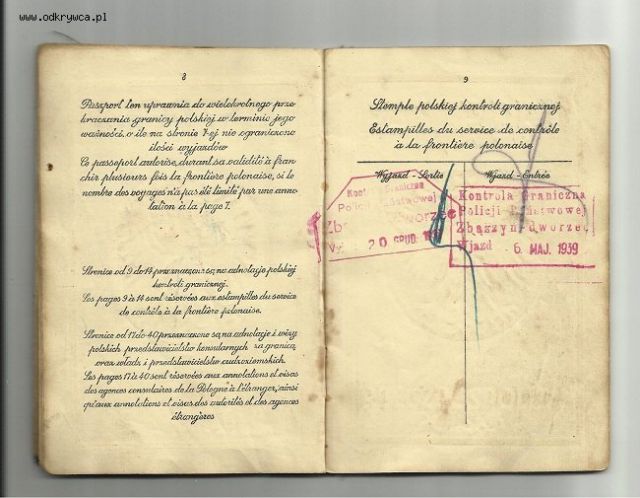 www.odkrywca.pl
8
Paszport ten uprawnia do wielokrotnego prze-
kraczania granicy polskiej w terminie jego
ważności, o ile na stronie 7-ej nie ograniczono
ilości wyjazdów
Ce passeport autorise, durant sa validité à fran-
chir plusieurs fois la frontière polonaise, si le
nombre des voyages n'a pas été limité par une anno-
tation à la page 7.
Stronice od 9 do 14 przeznaczone są na adnotacje polskiej
kontroli granicznej.
Les pages 9 à 14 sont réservées aux estampilles du service
de contrôle à la frontière polonaise.
Stronice od 17 do 40 przeznaczone są na adnotacje i wizy
polskich przedstawicielstw konsularnych za granicą
oraz władz i przedstawicielstw cudzoziemskich.
Les pages 17 à 40 sont réservées aux annotations et visas
des agences consulaires de la Pologne à l'étranger, ainsi
qu'aux annotations et visas des autorités et des agences
étrangères
9
Stemple polskiej kontroli granicznej
Estampilles du service de contrôle
à la frontière polonaise
Wyjazd - Sortie Wjazd - Entrée
Kont Graniczna
Policji Państwowej
Zb dworzec
20 GRUD. 19
Kontrola Graniczna
Policji Państwowej
Zbąszyń dworzec
Wjazd - 6. MAJ. 1939